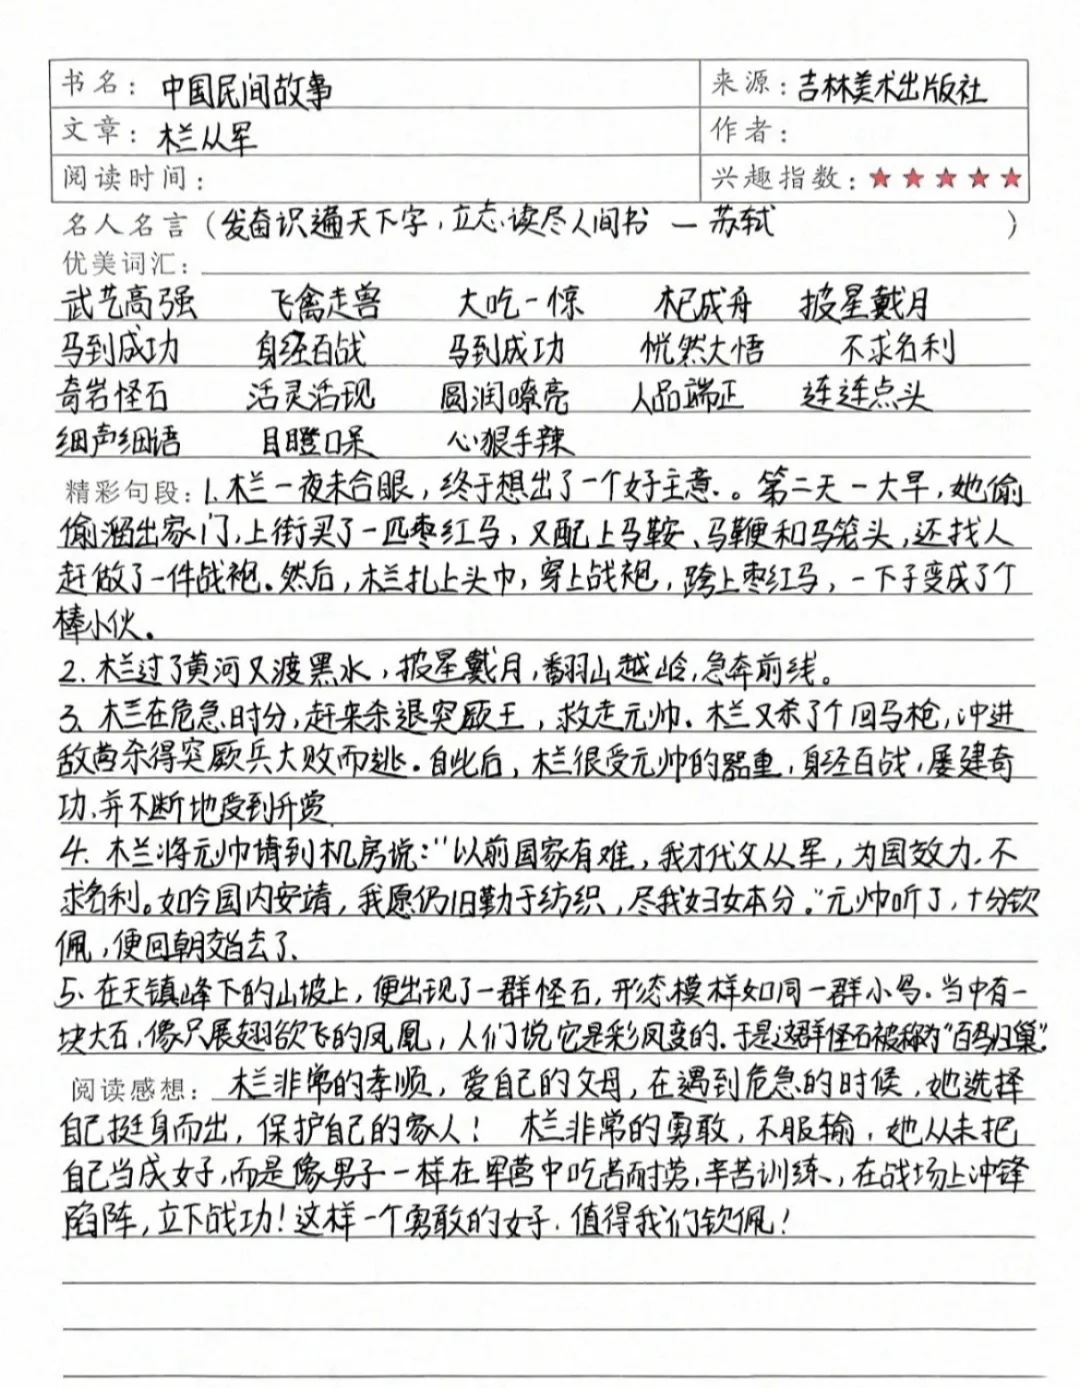 书名：中国民间故事 来源：吉林美术出版社
文章：木兰从军 作者：
阅读时间： 兴趣指数：★★★★★
名人名言（发奋识遍天下字，立志读尽人间书 — 苏轼）
优美词汇：
武艺高强 飞禽走兽 大吃一惊 木已成舟 披星戴月
马到成功 身经百战 马到成功 恍然大悟 不求名利
奇岩怪石 活灵活现 圆润嘹亮 人品端正 连连点头
细声细语 目瞪口呆 心狠手辣
精彩句段：1.木兰一夜未合眼，终于想出了一个好主意.。第二天一大早，她偷
偷溜出家门，上街买了一匹枣红马，又配上马鞍、马鞭和马笼头，还找人
赶做了一件战袍。然后，木兰扎上头巾，穿上战袍，跨上枣红马，一下子变成了个
棒小伙。
2.木兰过了黄河又渡黑水，披星戴月，翻山越岭，急奔前线。
3.木兰在危急时分，赶来杀退突厥王，救走元帅。木兰又杀了个回马枪，冲进
敌营杀得突厥兵大败而逃。自此后，木兰很受元帅的器重，身经百战，屡建奇
功，并不断地受到升赏
4.木兰将元帅请到机房说：“以前国家有难，我才代父从军，为国效力，不
求名利。如今国内安靖，我愿仍旧勤于纺织，尽我妇女本分。”元帅听了，十分钦
佩，便回朝交当去了.
5.在天镇峰下的山坡上，便出现了一群怪石，形态模样如同一群小鸟。当中有一
块大石，像只展翅欲飞的凤凰，人们说它是彩凤变的。于是这群怪石被称为“百鸟归巢”。
阅读感想：木兰非常的孝顺，爱自己的父母，在遇到危急的时候，她选择
自己挺身而出，保护自己的家人！木兰非常的勇敢，不服输，她从未把
自己当成女子，而是像男子一样在军营中吃苦耐劳，辛苦训练，在战场上冲锋
陷阵，立下战功！这样一个勇敢的女子，值得我们钦佩！